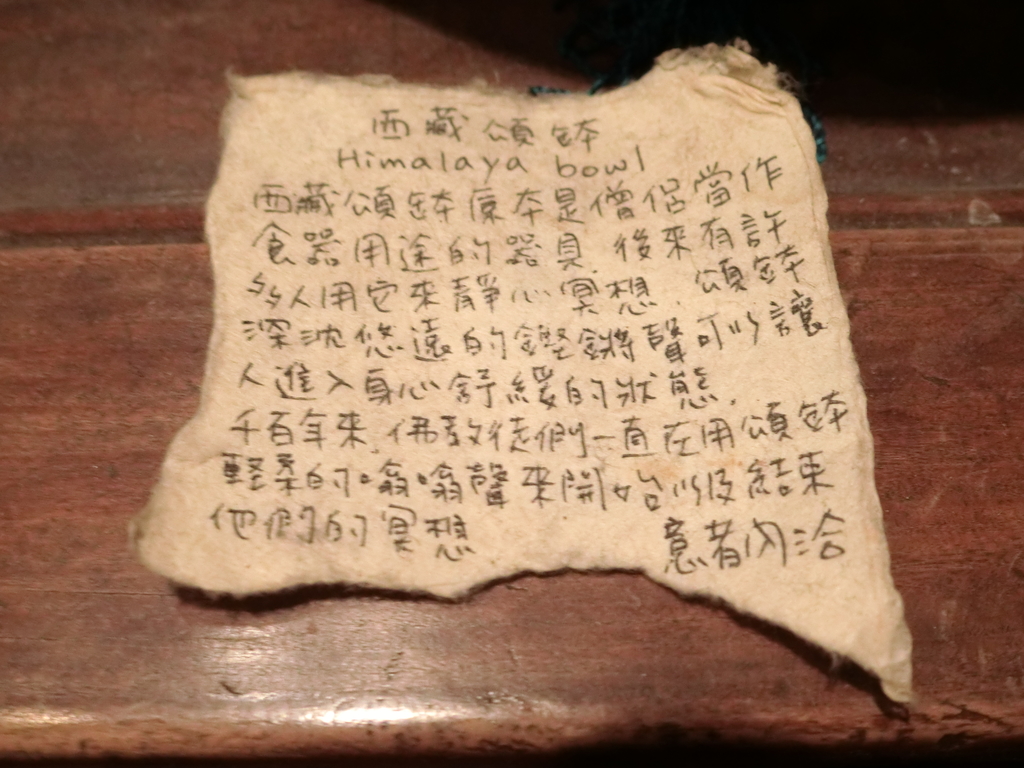 西藏頌缽
Himalaya bowl
西藏頌缽原本是僧侶當作
食器用途的器具.後來有許
多人用它來靜心冥想.頌缽
深沈悠遠的鏗鏘聲可以讓
人進入身心舒緩的狀態.
千百年來.佛教徒們一直在用頌缽
輕柔的嗡嗡聲來開始以及結束
他們的冥想
意者內洽